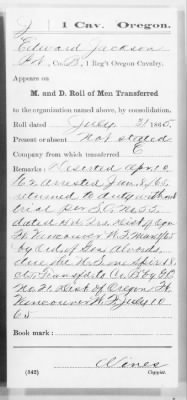 J | 1 Cav. | Oregon.
Edward Jackson
Co. B, 1 Reg't Oregon Cavalry.
Appears on
M. and D. Roll of Men Transferred
to the organization named above, by consolidation.
Roll dated July 21, 1865.
Present or absent Not stated
Company from which transferred E
Remarks: Deserted Apr. 10
62 Arrested Jan. 65
returned to duty without
trial Per S.O. No. 52
dated Hd. Qrs. Dist. of Ogn
Ft. Vancouver W.T. Mar 65
by Ord. of Gen. Alvord
due the U.S.
Co. B by G.O
No. 21 Dist. of Oregon Ft
Vancouver W.T. July 10
65
Book mark:
Vines
(342) Copyist.